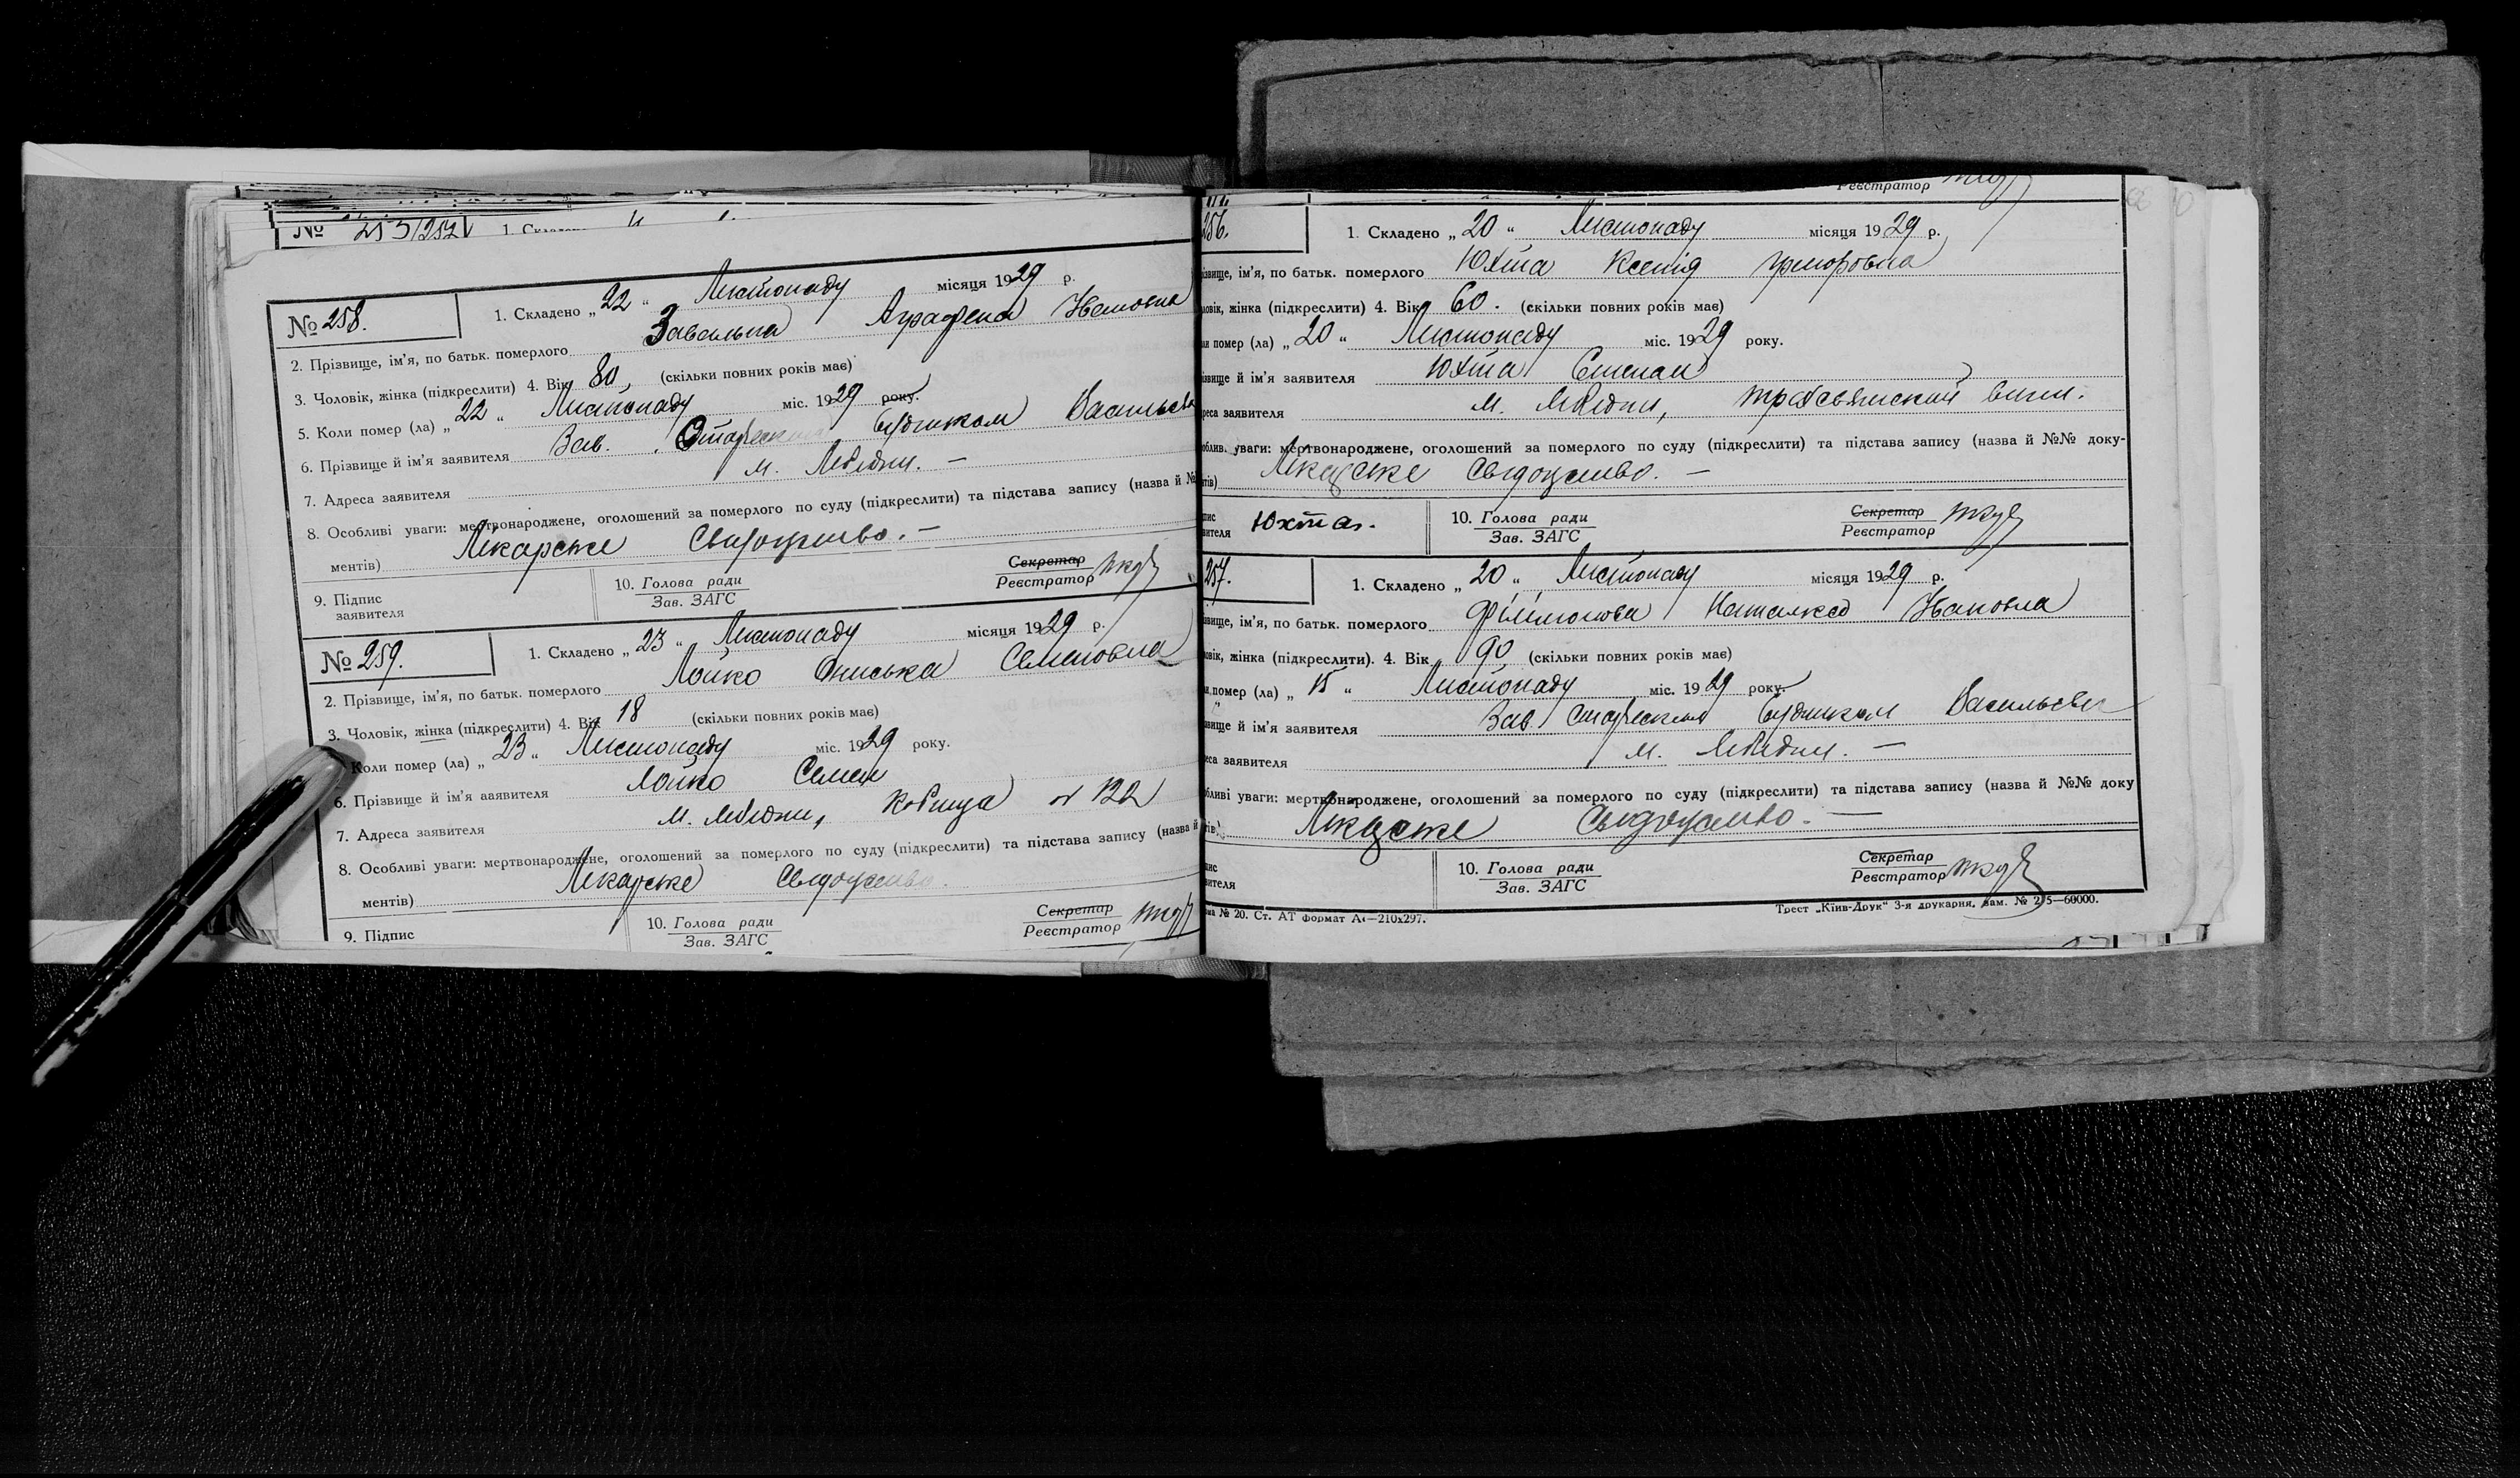 № 253/254 1. Складено
№ 258. 1. Складено „ 22 “ Листопаду місяця 1929 р.
2. Прізвище, ім'я, по батьк. померлого Завальна Аграфена Ивановна
3. Чоловік, жінка (підкреслити) 4. Вік 80, (скільки повних років має)
5. Коли помер (ла) „ 22 “ Листопаду міс. 1929 року.
6. Прізвище й ім'я заявителя Зав. Будинком
7. Адреса заявителя м. Лебедин. —
8. Особливі уваги: мертвонароджене, оголошений за померлого по суду (підкреслити) та підстава запису (назва й №
ментів) Лікарське Свідоцтво. —
9. Підпис заявителя 10. Голова ради Зав. ЗАГС Секретар Реєстратор
№ 259. 1. Складено „ 23 “ Листопаду місяця 1929 р.
2. Прізвище, ім'я, по батьк. померлого Лойко Ониська Семеновна
3. Чоловік, жінка (підкреслити) 4. Вік 18 (скільки повних років має)
Коли помер (ла) „ 23 “ Листопаду міс. 1929 року.
6. Прізвище й ім'я заявителя Лойко Семен
7. Адреса заявителя м. Лебедин, 122
8. Особливі уваги: мертвонароджене, оголошений за померлого по суду (підкреслити) та підстава запису (назва й
ментів) Лікарське Свідоцтво.
9. Підпис 10. Голова ради Зав. ЗАГС Секретар Реєстратор
Реєстратор
256. 1. Складено „ 20 “ Листопаду місяця 1929 р.
ізвище, ім'я, по батьк. померлого Юхта Ксенія
ловік, жінка (підкреслити) 4. Вік 60. (скільки повних років має)
ли помер (ла) „ 20 “ Листопаду міс. 1929 року.
ізвище й ім'я заявителя Юхта Степан
реса заявителя м. Лебедин,
облив. уваги: мертвонароджене, оголошений за померлого по суду (підкреслити) та підстава запису (назва й №№ доку-
нтів) Лікарське Свідоцтво. —
пис вителя Юхта. 10. Голова ради Зав. ЗАГС Секретар Реєстратор
257. 1. Складено „ 20 “ Листопаду місяця 1929 р.
звище, ім'я, по батьк. померлого Філімонова Наталка Ивановна
ловік, жінка (підкреслити). 4. Вік 90 (скільки повних років має)
и помер (ла) „ 15 “ Листопаду міс. 1929 року.
звище й ім'я заявителя Зав. Будинком
еса заявителя м. Лебедин. —
бливі уваги: мертвонароджене, оголошений за померлого по суду (підкреслити) та підстава запису (назва й №№ доку
тів) Лікарське Свідоцтво. —
пис вителя 10. Голова ради Зав. ЗАГС Секретар Реєстратор
ма № 20. Ст. АТ формат А4—210х297. Трест „Київ-Друк“ 3-я друкарня. Зам. № 215—60000.